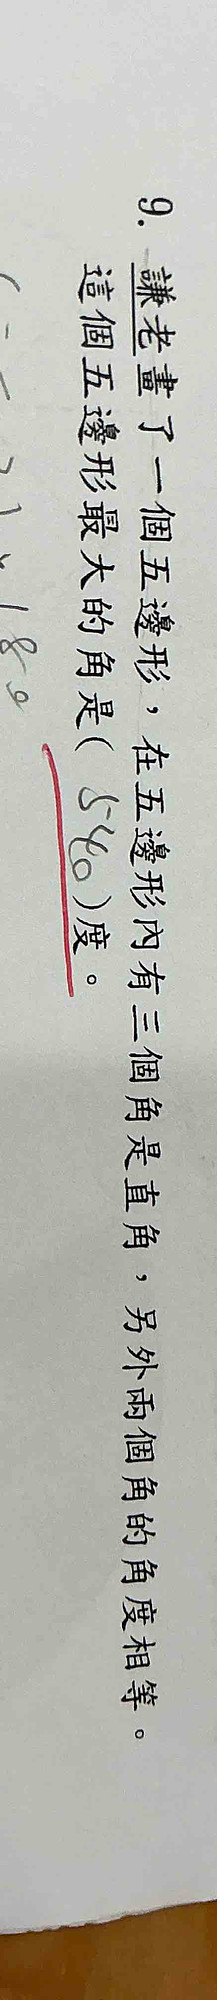 9. 謙老畫了一個五邊形，在五邊形內有三個角是直角，另外兩個角的角度相等。
這個五邊形最大的角是( 540 )度。